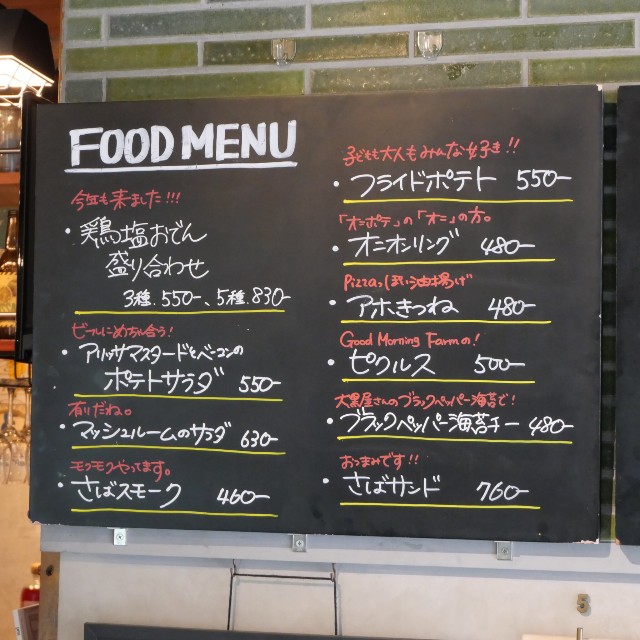 FOOD MENU
今年も来ました!!!
・鶏塩おでん
盛り合わせ
3種.550-、5種.830-
ビールにめちゃ合う!
・アリッサマスタードとベーコンの
ポテトサラダ 550-
有りだね。
・マッシュルームのサラダ 630-
モクモクやってます。
・さばスモーク 460-
子どもも大人もみんな好き!!
・フライドポテト 550-
「オニポテ」の「オニ」の方。
・オニオンリング 480-
Pizzaっぽい油揚げ
・アホきつね 480-
Good Morning Farmの!
・ピクルス 500-
大黒屋さんのブラックペッパー海苔で!
・ブラックペッパー海苔チー 480-
おつまみです!!
・さばサンド 760-
5